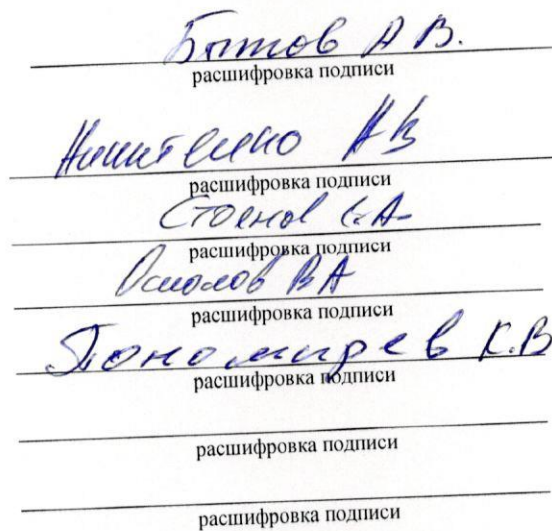 Бытов А В.
расшифровка подписи
Никитенко А В
расшифровка подписи
Стоянов С.А.
расшифровка подписи
Осмолов В А
расшифровка подписи
Пономарев К.В
расшифровка подписи
расшифровка подписи
расшифровка подписи